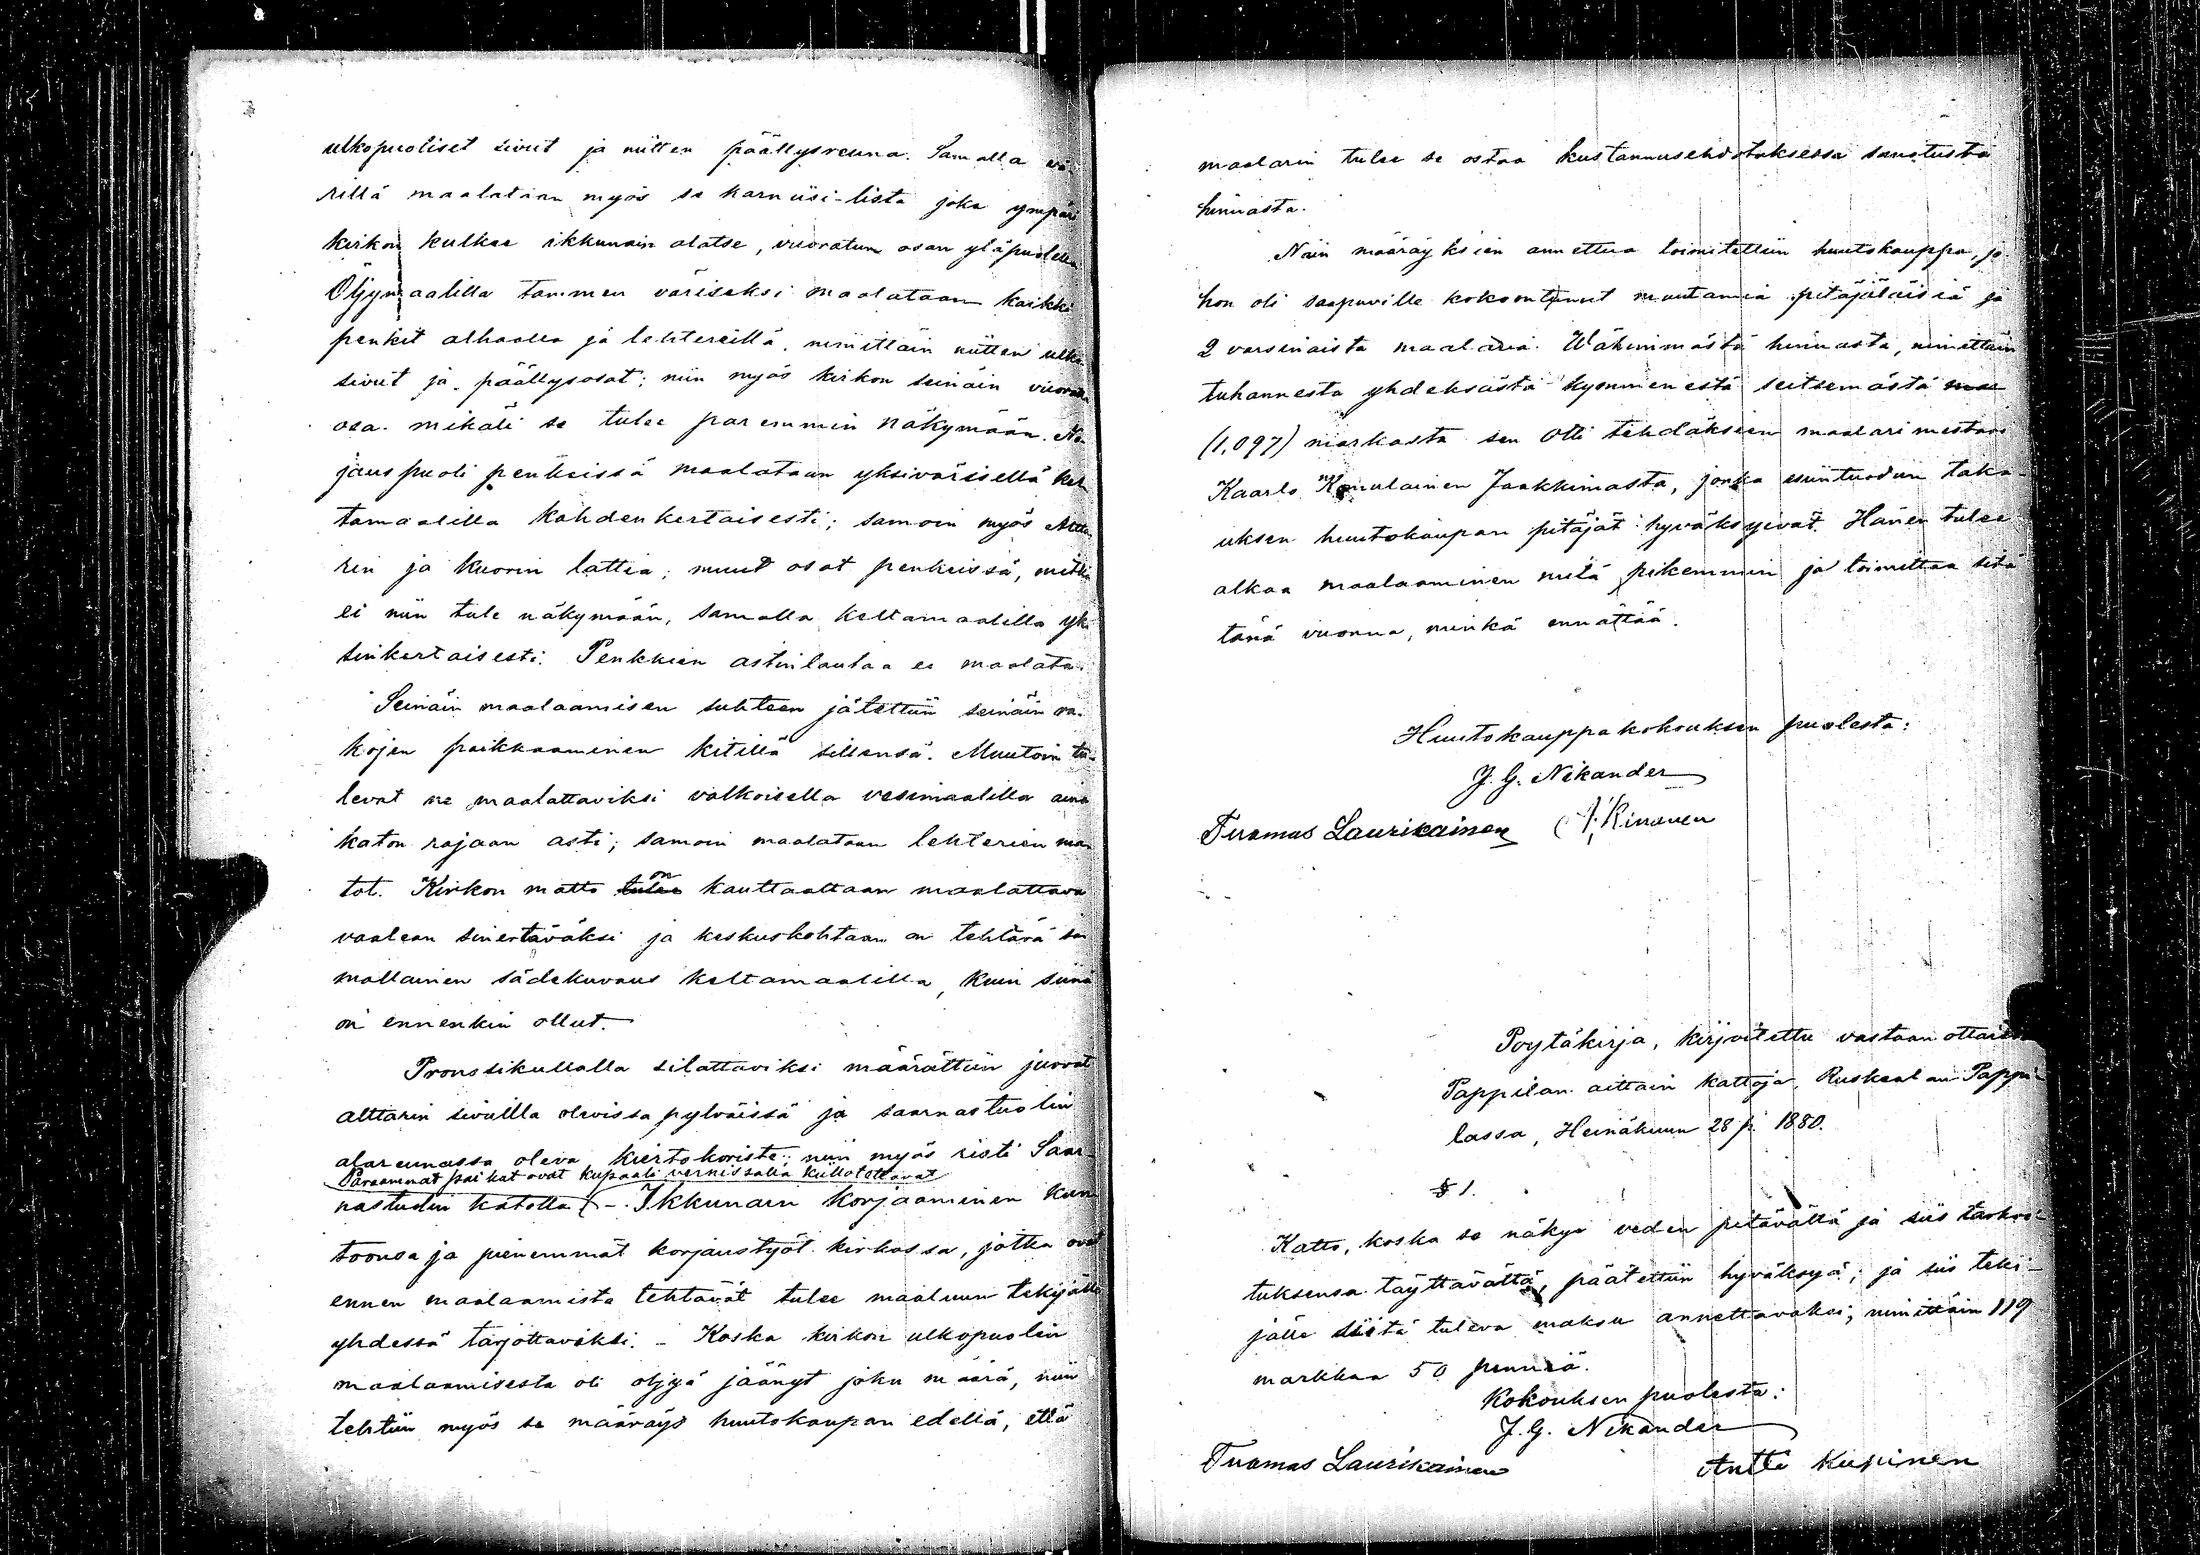 ulkopuoliset sivut ja niitten päällysreuna. Samalla vä-
rillä maalataan myös se karniisi-lista joka ympäri
kirkon kulkee ikkunain alatse, vuoratun osan yläpuolella
Öljymaalilla tammen väriseksi maalataan kaikki
penkit alhaalla ja lehtereillä, nimittäin niitten ulko
sivut ja päällysosat; niin myös kirkon seinäin vuorattu
osa. mikäli se tulee paremmin näkymään. No-
jauspuoli penkeissä maalataan yksivärisellä kel
tamaalilla kahdenkertaisesti; samoin myös Altta
rin ja kuorin lattia; muut osat penkeissä, mitkä
ei niin tule näkymään, samalla keltamaalilla yk-
sinkertaisesti. Penkkien astinlautaa ei maalata.
Seinäin maalaamisen suhteen jätettiin seinäin ra-
kojen paikkaaminen kitillä sillensä. Muutoin tu-
levat ne maalattaviksi valkoisella vesimaalilla aina
katon rajaan asti; samoin maalataan lehterien ma
tot. Kirkon matto tulee on kauttaaltaan maalattava
vaalean sinertäväksi ja keskuskohtaan on tehtävä sa
mallainen sädekuvaus keltamaalilla, kuin siinä
on ennenkin ollut.
Pronssikullalla silattaviksi määrättiin juovat
alttarin sivuilla olevissa pylväissä ja saarnastuolin
alareunassa oleva kiertokoriste; niin myös risti Saar-
Paraammat paikat ovat kupaali vernissalla kiillotettavat
nastuolin katolla. - Ikkunain korjaaminen kun
toonsa ja pienemmät korjaustyöt kirkossa, jotka ovat
ennen maalaamista tehtävät tulee maaluun tekijälle
yhdessä tarjottaviksi. - Koska kirkon ulkopuolin
maalaamisesta oli öljyä jäänyt joku määrä, niin
tehtiin myös se määräys huutokaupan edellä, että
maalarin tulee se ostaa kustannusehdotuksessa sanotusta
hinnasta.
Näin määräyksien annettua toimitettiin huutokauppa, jo-
hon oli saapuville kokoontunut muutamia pitäjäläisiä ja
2 varsinaista maalaria. Wähimmästä hinnasta, nimittäin
tuhannesta yhdeksästä kymmenestä seitsemästä mar
(1,097) markasta sen otti tehdäksein maalarimestari
Kaarlo Komulainen Jaakkimasta, jonka esiintuodun taka-
uksen huutokaupan pitäjät hyväksyivät. Hänen tulee
alkaa maalaaminen mitä pikemmin ja toimittaa sitä
tänä vuonna, minkä ennättää.
Huutokauppakokouksen puolesta:
J. G. Nikander
Tuomas Laurikainen A. Kinanen
Poytäkirja, kirjoitettu vastaan ottaissa
Pappilan aittain kattoja, Ruskealan Pappi-
lassa, Heinäkuun 28 p. 1880.
§ 1.
Katto, koska se näkyi veden pitävältä ja siis tarkoi-
tuksensa täyttävältä, päätettiin hyväksyä; ja siis teki-
jälle siitä tuleva maksu annettavaksi; nimittäin 119
markkaa 50 penniä.
Kokouksen puolesta:
J. G. Nikander
Tuomas Laurikainen Antti Kupinen